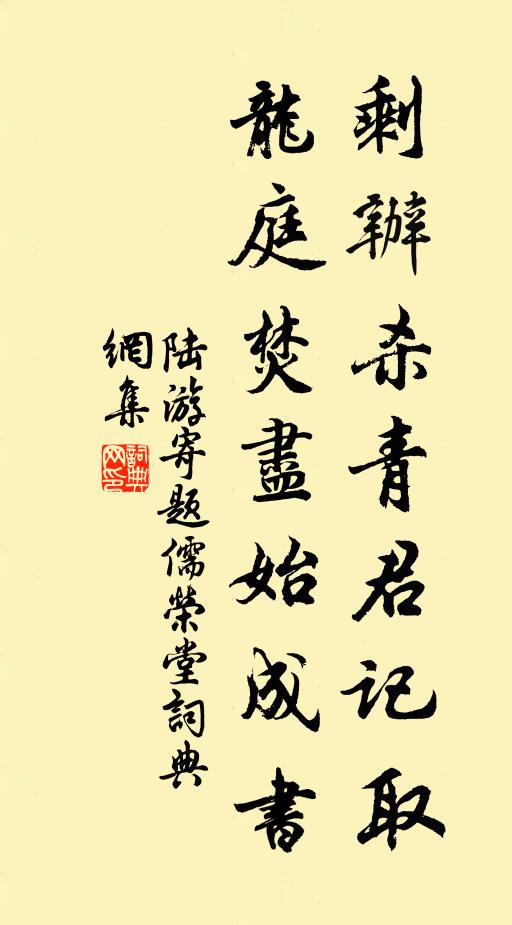 剩辦杀青君记取
龍庭焚盡始成書
陆游寄题儒榮堂詞典
網集
詞典網印